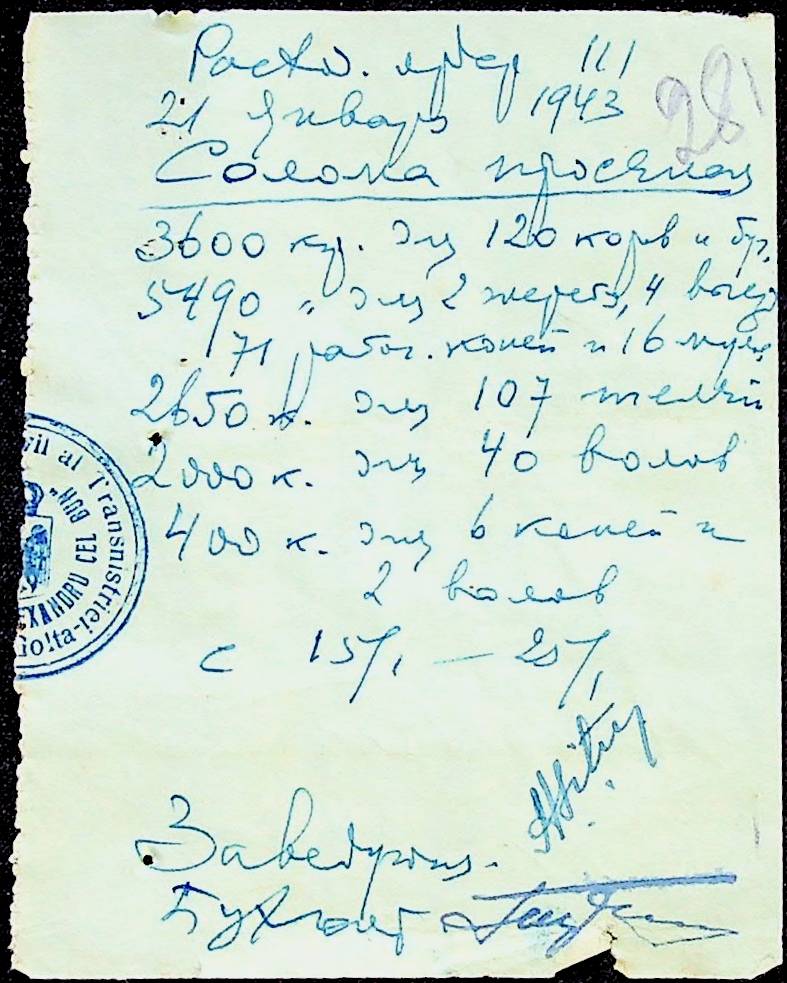 Расход. ордер 111
21 Январь 1943
28
Солома просяная
3600 кг. для 120 коров и буг.
5490 " для 2 жереб, 4 выезд
71 рабоч. коней и 16 мулов
2650 к. для 107 телят
2000 к. для 40 волов
400 к. для 6 коней и
2 волов
с 15/1 — 25/1
Заведующ.
Бухгалт
vil al Transnistriei
EXANDRU CEL BUN"
Golta-i